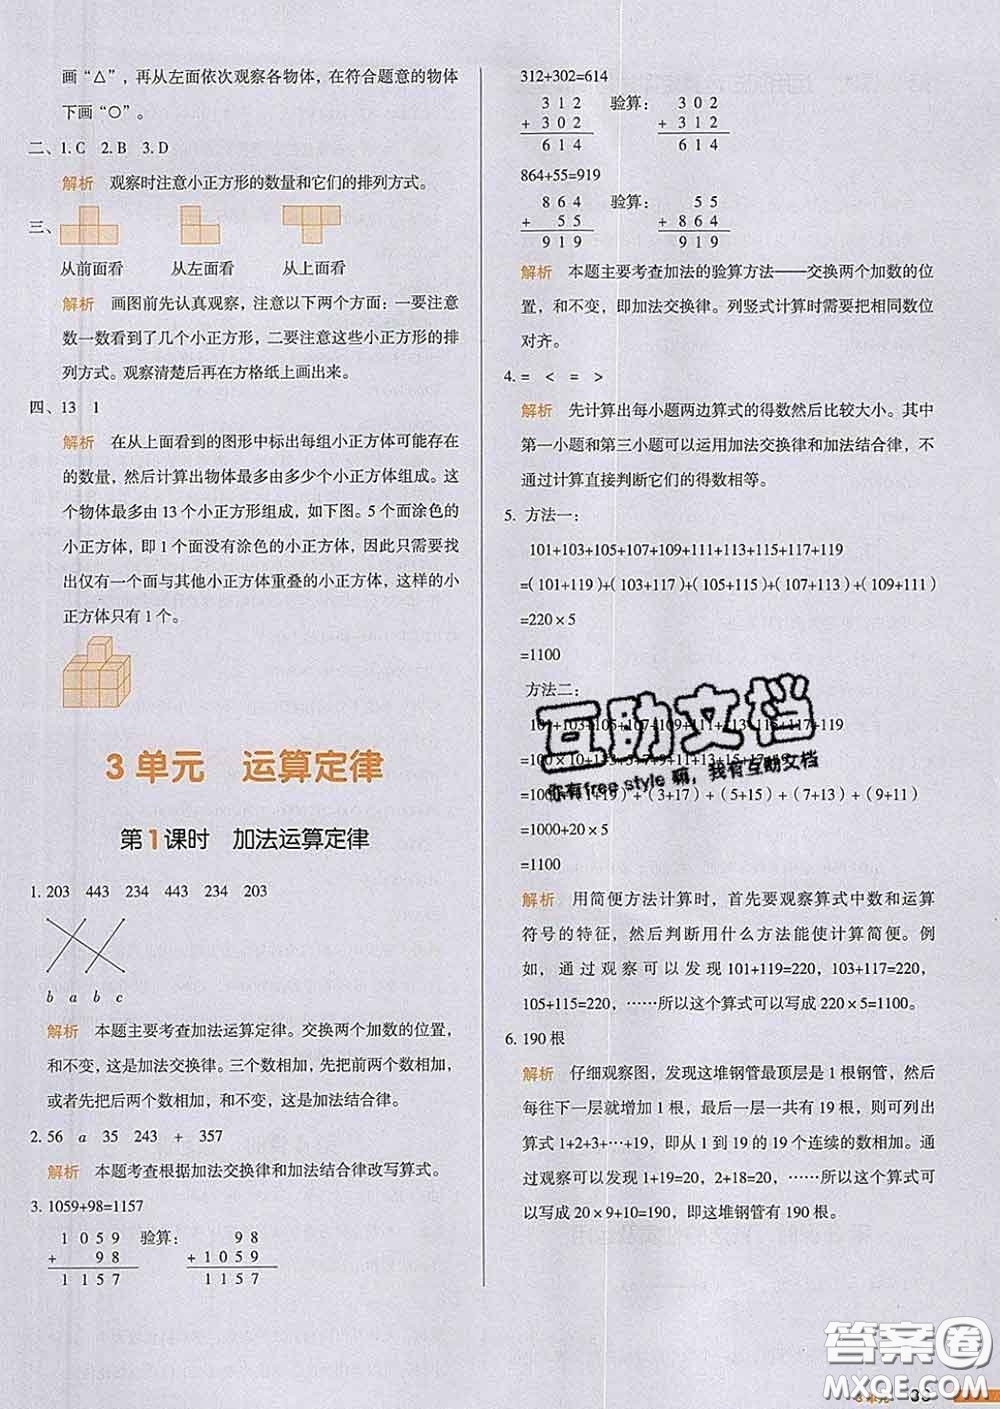 画“△”，再从左面依次观察各物体，在符合题意的物体
下画“○”。
二、1. C 2. B 3. D
解析 观察时注意小正方形的数量和它们的排列方式。
三、
从前面看 从左面看 从上面看
解析 画图前先认真观察，注意以下两个方面：一要注意
数一数看到了几个小正方形，二要注意这些小正方形的排
列方式。观察清楚后再在方格纸上画出来。
四、13 1
解析 在从上面看到的图形中标出每组小正方体可能存在
的数量，然后计算出物体最多由多少个小正方体组成。这
个物体最多由 13 个小正方形组成，如下图。5 个面涂色的
小正方体，即 1 个面没有涂色的小正方体，因此只需要找
出仅有一个面与其他小正方体重叠的小正方体，这样的小
正方体只有 1 个。
3 单元 运算定律
第1课时 加法运算定律
1. 203 443 234 443 234 203
b a b c
解析 本题主要考查加法运算定律。交换两个加数的位置，
和不变，这是加法交换律。三个数相加，先把前两个数相加，
或者先把后两个数相加，和不变，这是加法结合律。
2. 56 a 35 243 + 357
解析 本题考查根据加法交换律和加法结合律改写算式。
3. 1059+98=1157
1 0 5 9 验算： 9 8
+ 9 8 + 1 0 5 9
1 1 5 7 1 1 5 7
312+302=614
3 1 2 验算： 3 0 2
+ 3 0 2 + 3 1 2
6 1 4 6 1 4
864+55=919
8 6 4 验算： 5 5
+ 5 5 + 8 6 4
9 1 9 9 1 9
解析 本题主要考查加法的验算方法——交换两个加数的位
置，和不变，即加法交换律。列竖式计算时需要把相同数位
对齐。
4. = < = >
解析 先计算出每小题两边算式的得数然后比较大小。其中
第一小题和第三小题可以运用加法交换律和加法结合律，不
通过计算直接判断它们的得数相等。
5. 方法一：
101+103+105+107+109+111+113+115+117+119
=(101+119)+(103+117)+(105+115)+(107+113)+(109+111)
=220×5
=1100
方法二：
101+103+105+107+109+111+113+115+117+119
=100×10+1+3+5+7+9+11+13+15+17+19
=1000+(1+19)+(3+17)+(5+15)+(7+13)+(9+11)
=1000+20×5
=1100
互助文档
你有free style 嘛，我有互助文档
解析 用简便方法计算时，首先要观察算式中数和运算
符号的特征，然后判断用什么方法能使计算简便。例
如，通过观察可以发现 101+119=220，103+117=220，
105+115=220，……所以这个算式可以写成 220×5=1100。
6. 190 根
解析 仔细观察图，发现这堆钢管最顶层是 1 根钢管，然后
每往下一层就增加 1 根，最后一层一共有 19 根，则可列出
算式 1+2+3+…+19，即从 1 到 19 的 19 个连续的数相加。通
过观察可以发现 1+19=20，2+18=20，……所以这个算式可
以写成 20×9+10=190，即这堆钢管有 190 根。
答案圈
MXQE.COM
3 单元